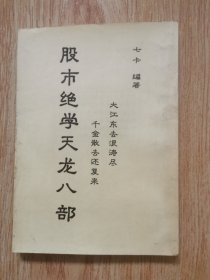 七卡 编著
大江东去浪涛尽
千金散去还复来
股市绝学天龙八部